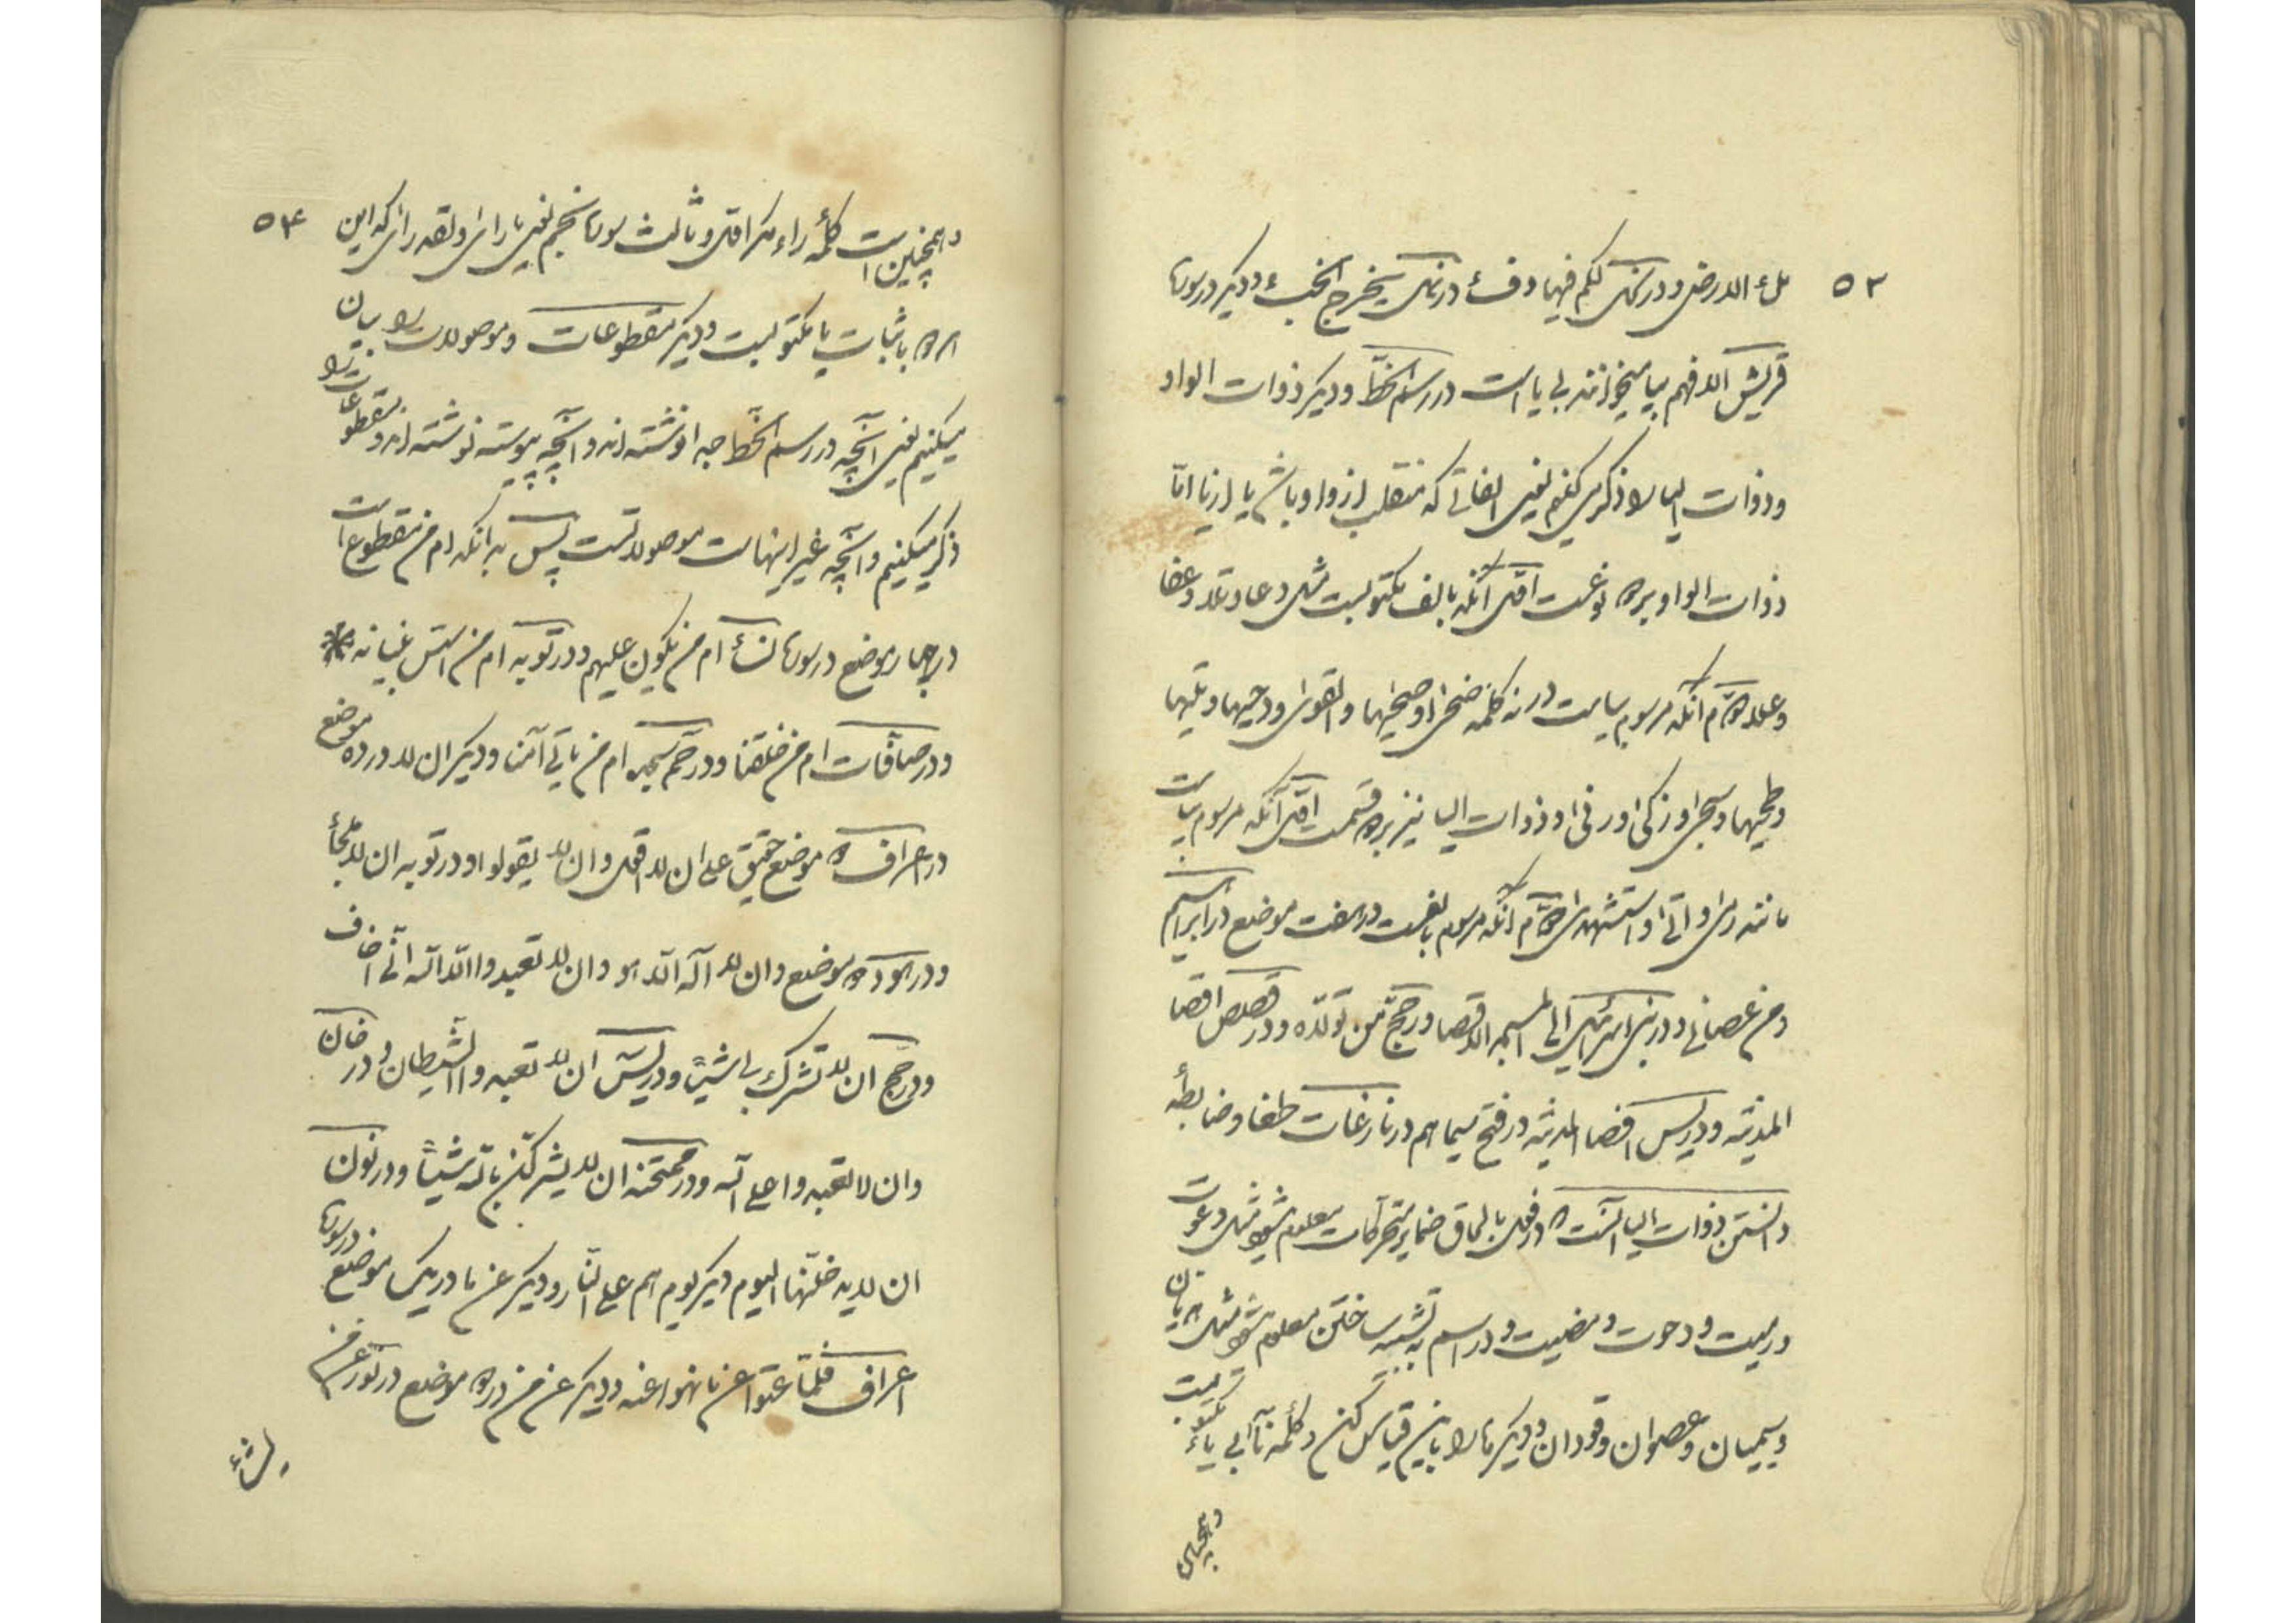 ۵۳
ملء الارض و در نحل لكم فيها دفء و در نمل يخرج الخبء و ديكر در سوره
قريش الافهم بيا ميخوانند بى يا است در رسم الخط و ديكر ذوات الواو
و ذوات اليا را ذكر مى كنم يعنى الفاتى كه منقلب از واو باشد يا از يا اما
ذوات الواو بر دو نوعست اول آنكه بالف مكتوبست مثل دعا و تلا و عفا
و علا دوم آنكه مرسوم بياست در نه كلمه ضحى و ضحيها و القوى و دحيها و تليها
و طحيها و سجى و زكى و ذوات اليا نيز بر دو قسمست اول آنكه مرسوم بياست
مانند رمى و اتى و استشهدى دوم آنكه مرسوم بالفست در هفت موضع در ابراهيم
و من عصانى و در بنى اسرائيل الى المسجد الاقصا و در حج من تولاه و در قصص اقصا
المدينة و در يس اقصا المدينة در فتح سيماهم در نازعات طغا و ضابطه
دانستن ذوات اليا آنست كه در فعل بالحاق ضماير متحركات معلوم شود مثل دعوت
و رميت و دحوت و مضيت و در اسم به تثنيه ساختن معلوم شود مثل
و سيميان و عصوان و قودان و ديكرها را باين قياس كن و كلمه نآ بى ياء مكتوبست
و همچنين
۵۴
و همچنين است كلمه راء مكر اول و ثالث سوره نجم يعنى ما راى و لقد راى كه اين
دو باثبات يا مكتوبست و ديكر مقطوعات و موصولات را بيان
ميكنيم يعنى آنچه در رسم الخط جدا نوشته اند و آنچه پيوسته نوشته اند و مقطوعات را
ذكر ميكنيم و آنچه غير اينهاست موصولاتست پس بدانكه ام من مقطوع است
در چهار موضع در سوره نساء ام من يكون عليهم و در توبه ام من اسس بنيانه
و در صافات ام من خلقنا و در حم سجده ام من ياتى آمنا و ديكر ان لا در ده موضع
در اعراف دو موضع حقيق على ان لا اقول و ان لا يقولوا و در توبه ان لا ملجأ
و در هود دو موضع و ان لا اله الا هو و ان لا تعبدوا الا الله انى اخاف
و در حج ان لا تشرك بى شيئا و در يس ان لا تعبدوا الشيطان و در دخان
و ان لا تعلوا على الله و در ممتحنه ان لا يشركن بالله شيئا و در نون
ان لا يدخلنها اليوم ديكر يوم هم على النار و ديكر عن ما در يك موضع در سوره
اعراف فلما عتوا عن ما نهوا عنه و ديكر عن من در دو موضع در نور عن من
يشاء